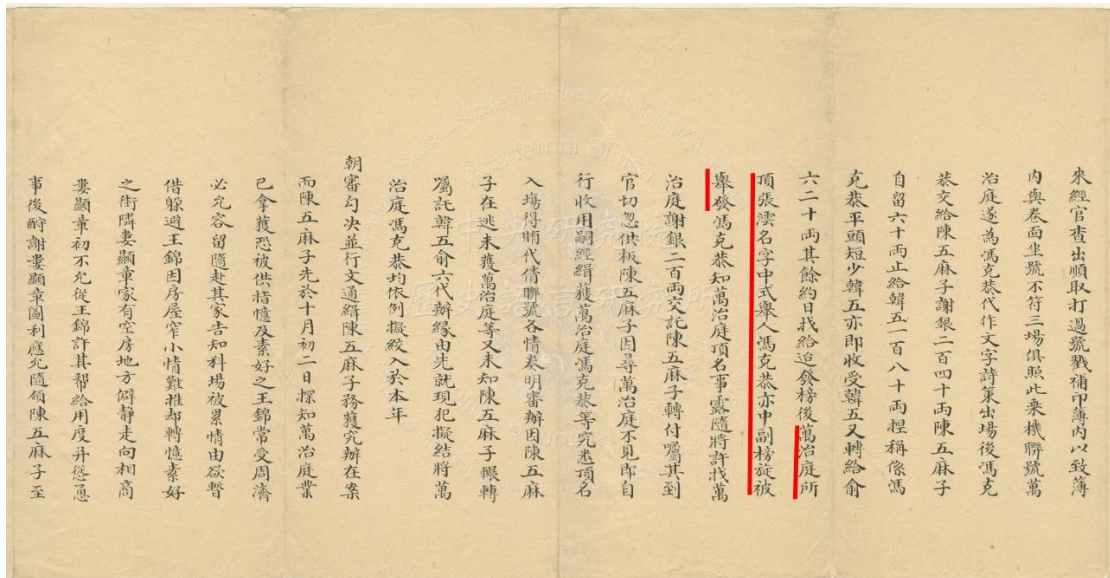 來經官查出順取打過號戳補印簿內以致簿
內與卷面坐號不符三場俱照此乘機聯號萬
治庭遂為馮克恭代作文字詩策出場後馮克
恭交給陳五麻子謝銀二百四十兩陳五麻子
自留六十兩止給韓五一百八十兩捏稱係馮
克恭平頭短少韓五亦即收受韓五又轉給俞
六二十兩其餘約日找給迨發榜後萬治庭所
頂張澐名字中式舉人馮克恭亦中副榜旋被
舉發馮克恭知萬治庭頂名事露隨將許找萬
治庭謝銀二百兩交託陳五麻子轉付囑其到
官切忽供扳陳五麻子因尋萬治庭不見即自
行收用嗣經緝獲萬治庭馮克恭等究悉頂名
入場得賄代倩聯號各情奏明審辦因陳五麻
子在逃未獲萬治庭等又未知陳五麻子輾轉
囑託韓五俞六代辦緣由先就現犯擬結將萬
治庭馮克恭均依例擬絞入於本年
朝審勾決並行文通緝陳五麻子務獲究辦在案
而陳五麻子先於十月初二日探知萬治庭業
已拿獲恐被供指憶及素好之王錦常受周濟
必允容留隨赴其家告知科場被累情由欲暫
借躲避王錦因房屋窄小情難推却轉憶素好
之街隣婁顯章家有空房地方僻靜走向相商
婁顯章初不允從王錦許其幫給用度并慫恿
事後酧謝婁顯章圖利應允隨領陳五麻子至
Institute of History & Philology
Academia Sinica
中央研究院
歷史語言研究所